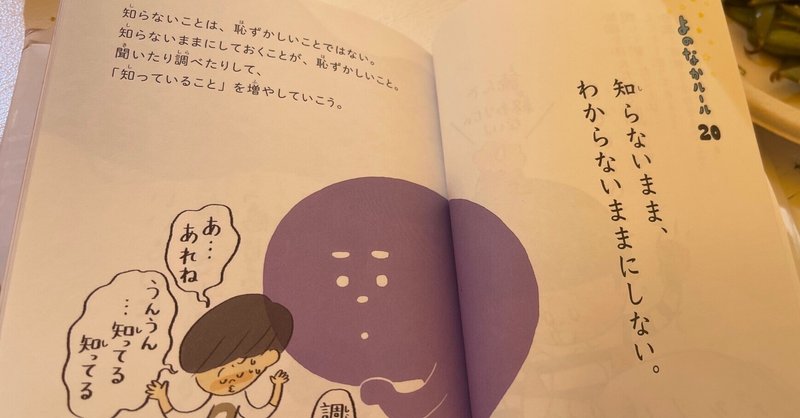 よのなかルール 20
知らないまま、
わからないままにしない。
知らないことは、恥ずかしいことではない。
知らないままにしておくことが、恥ずかしいこと。
聞いたり調べたりして、
「知っていること」を増やしていこう。
あ…
あれね
うんうん
…知ってる
知ってる
調